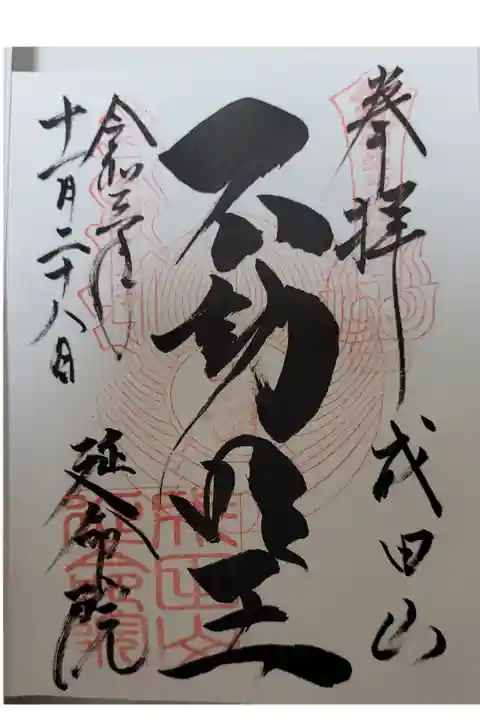 奉拝
成田山
不動明王
令和三年
十一月二十八日
延命院